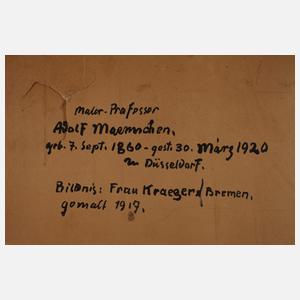 Maler-Professor
Adolf Maennchen.
geb. 7. Sept. 1860 - gest. 30. März 1920
zu Düsseldorf.
Bildnis: Frau Kraeger/Bremen.
gemalt 1917.